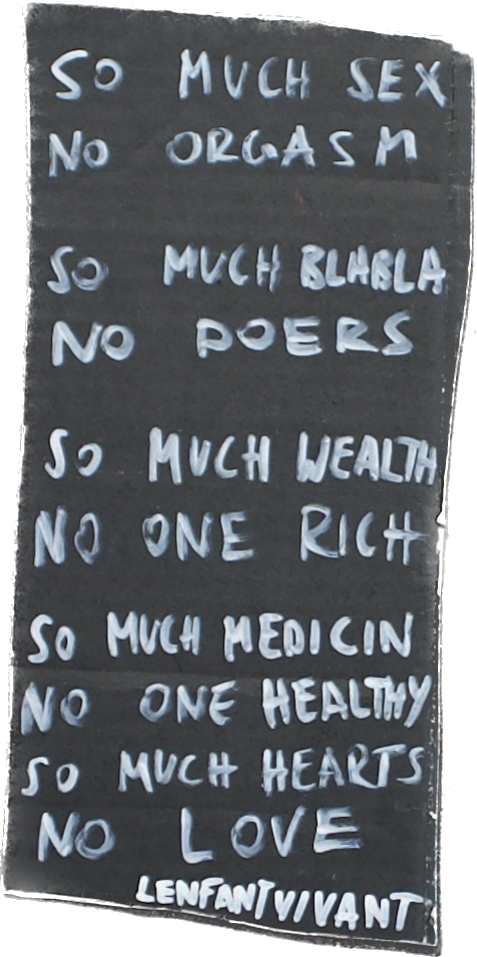 SO MUCH SEX
NO ORGASM
SO MUCH BLABLA
NO DOERS
SO MUCH WEALTH
NO ONE RICH
SO MUCH MEDICIN
NO ONE HEALTHY
SO MUCH HEARTS
NO LOVE
LENFANTVIVANT